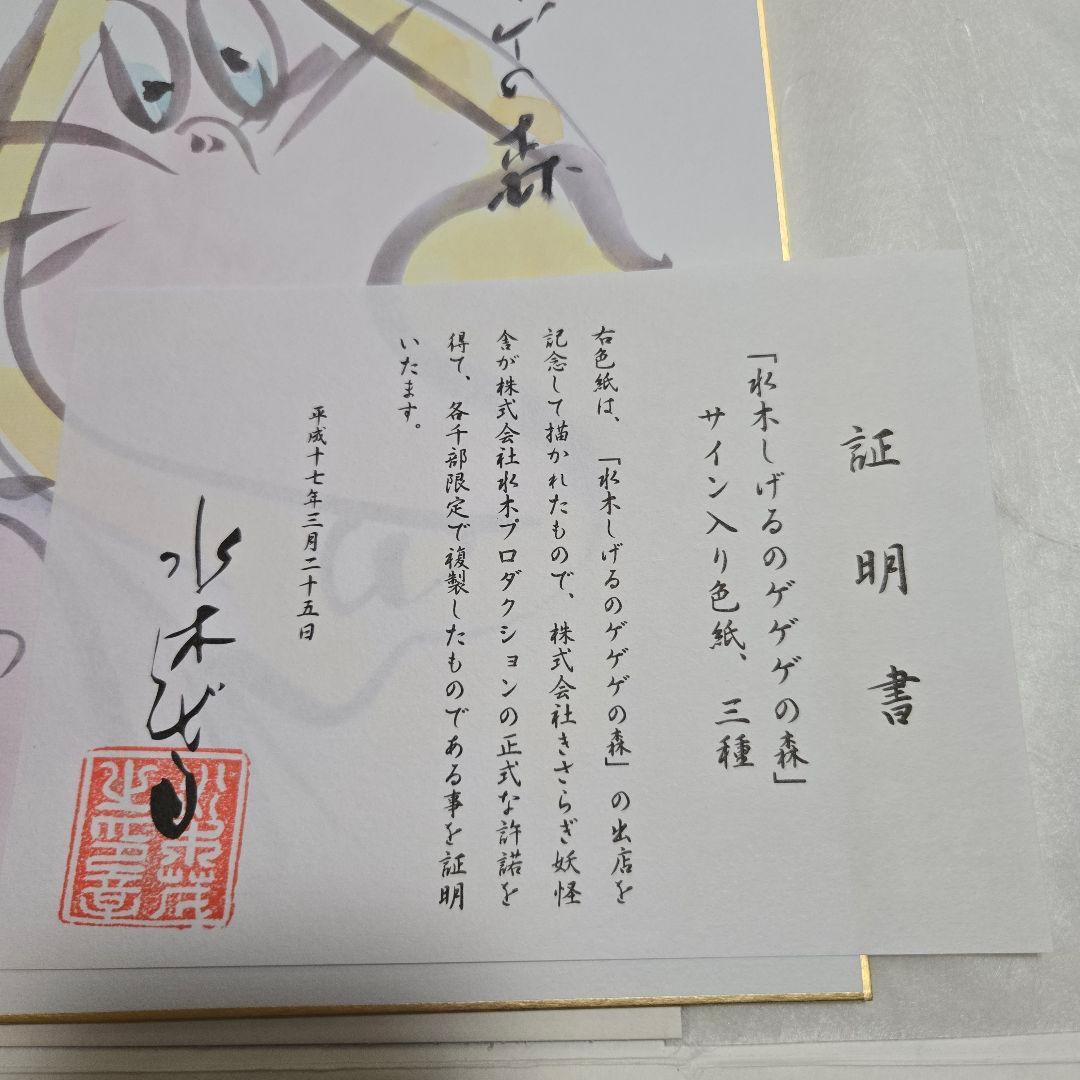 の森
証明書
「水木しげるのゲゲゲの森」
サイン入り色紙、三種
右色紙は、「水木しげるのゲゲゲの森」の出店を
記念して描かれたもので、株式会社きさらぎ妖怪
舎が株式会社水木プロダクションの正式な許諾を
得て、各千部限定で複製したものである事を証明
いたます。
平成十七年三月二十五日
水木しげる